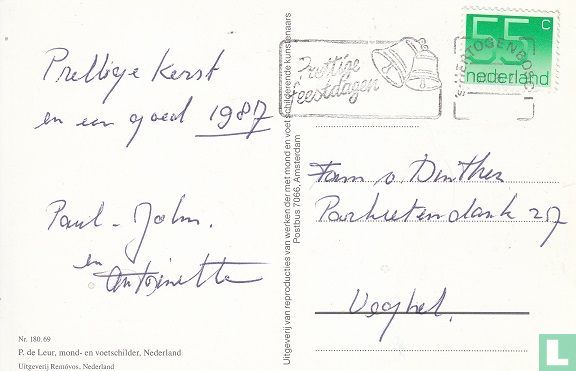 Prettige Kerst
en een goed 1987
Paul - John.
en
Antoinette
Nr. 180.69
P. de Leur, mond- en voetschilder, Nederland
Uitgeverij Removos, Nederland
Uitgeverij van reproducties van werken der met mond en voet schilderende kunstenaars
Postbus 7066, Amsterdam
Prettige
Feestdagen
55 c
nederland
'S-HERTOGENBOSCH
Fam v. Dinther
207
Veghel.
L